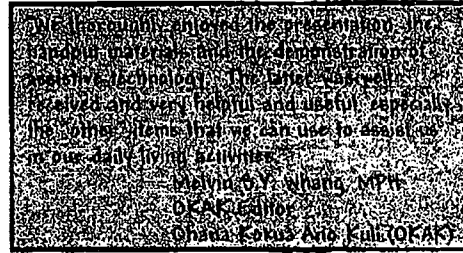 "We thoroughly enjoyed the presentation, the
handout materials and the demonstration of
assistive technology. The latter was well
received and very helpful and useful especially
the "other" items that we can use to assist us
in our daily living activities."
— Melvin S.Y. Whang, MPH
OKAK Editor
Ohana Kokua Ano Kuli (OKAK)